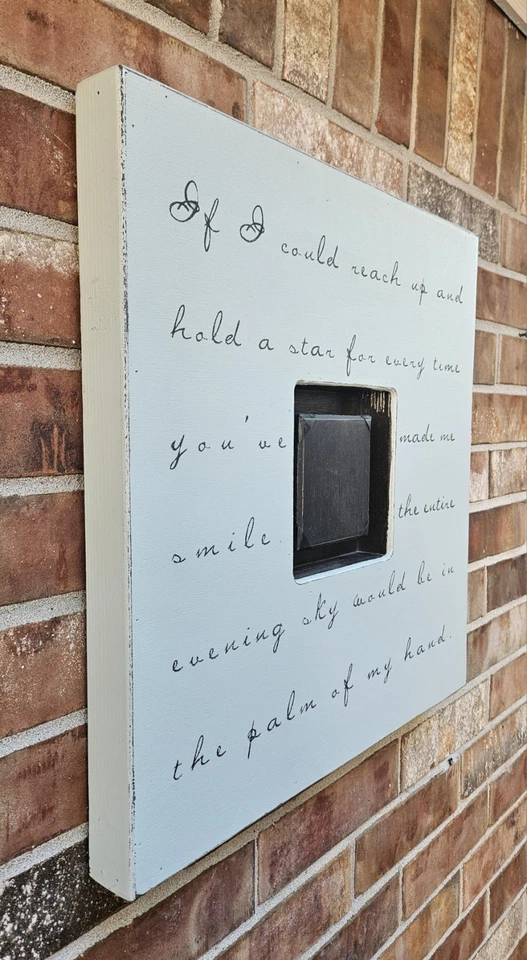 If I could reach up and
hold a star for every time
you've made me
smile the entire
evening sky would be in
the palm of my hand.